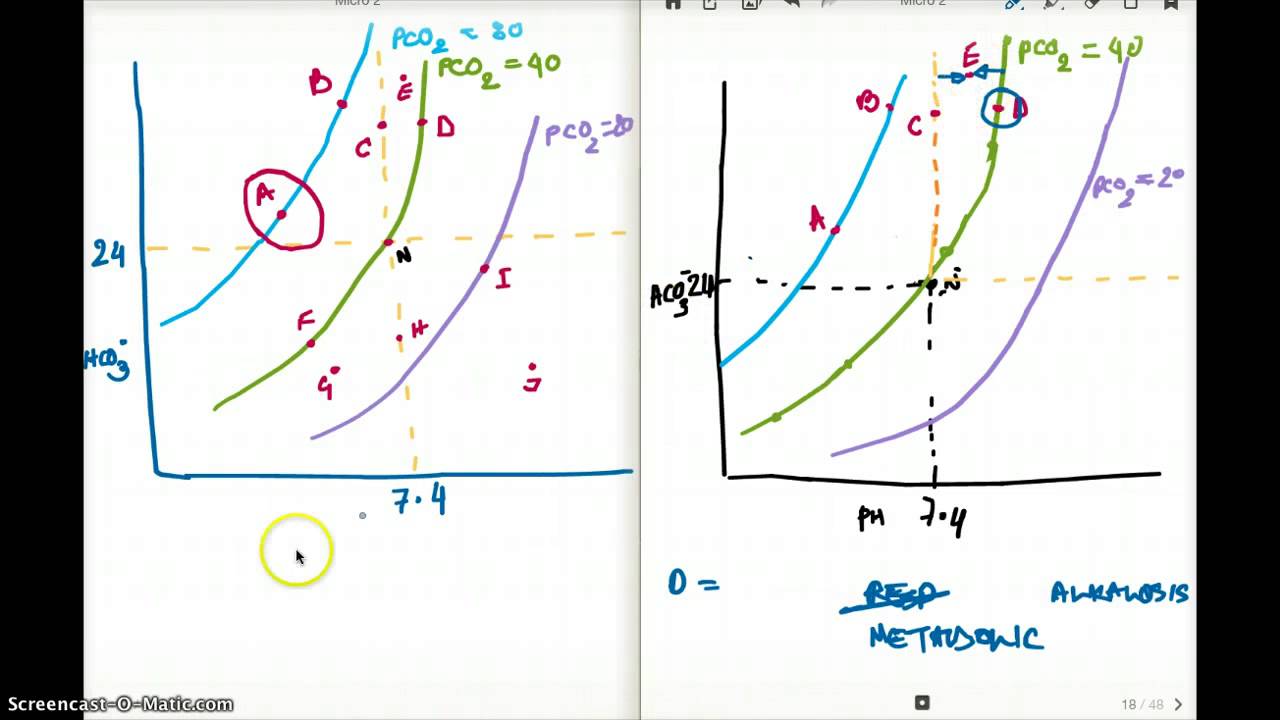 Micro 2
PCO2 = 80
PCO2 = 40
B
E
C
D
PCO2=20
A
24
N
I
F
H
HCO3-
G
J
7.4
Micro 2
E
PCO2 = 40
B
C
D
PCO2=20
A
ACO3-24
N
PH 7.4
D = RESP ALKALOSIS
METABOLIC
18 / 48
Screencast-O-Matic.com